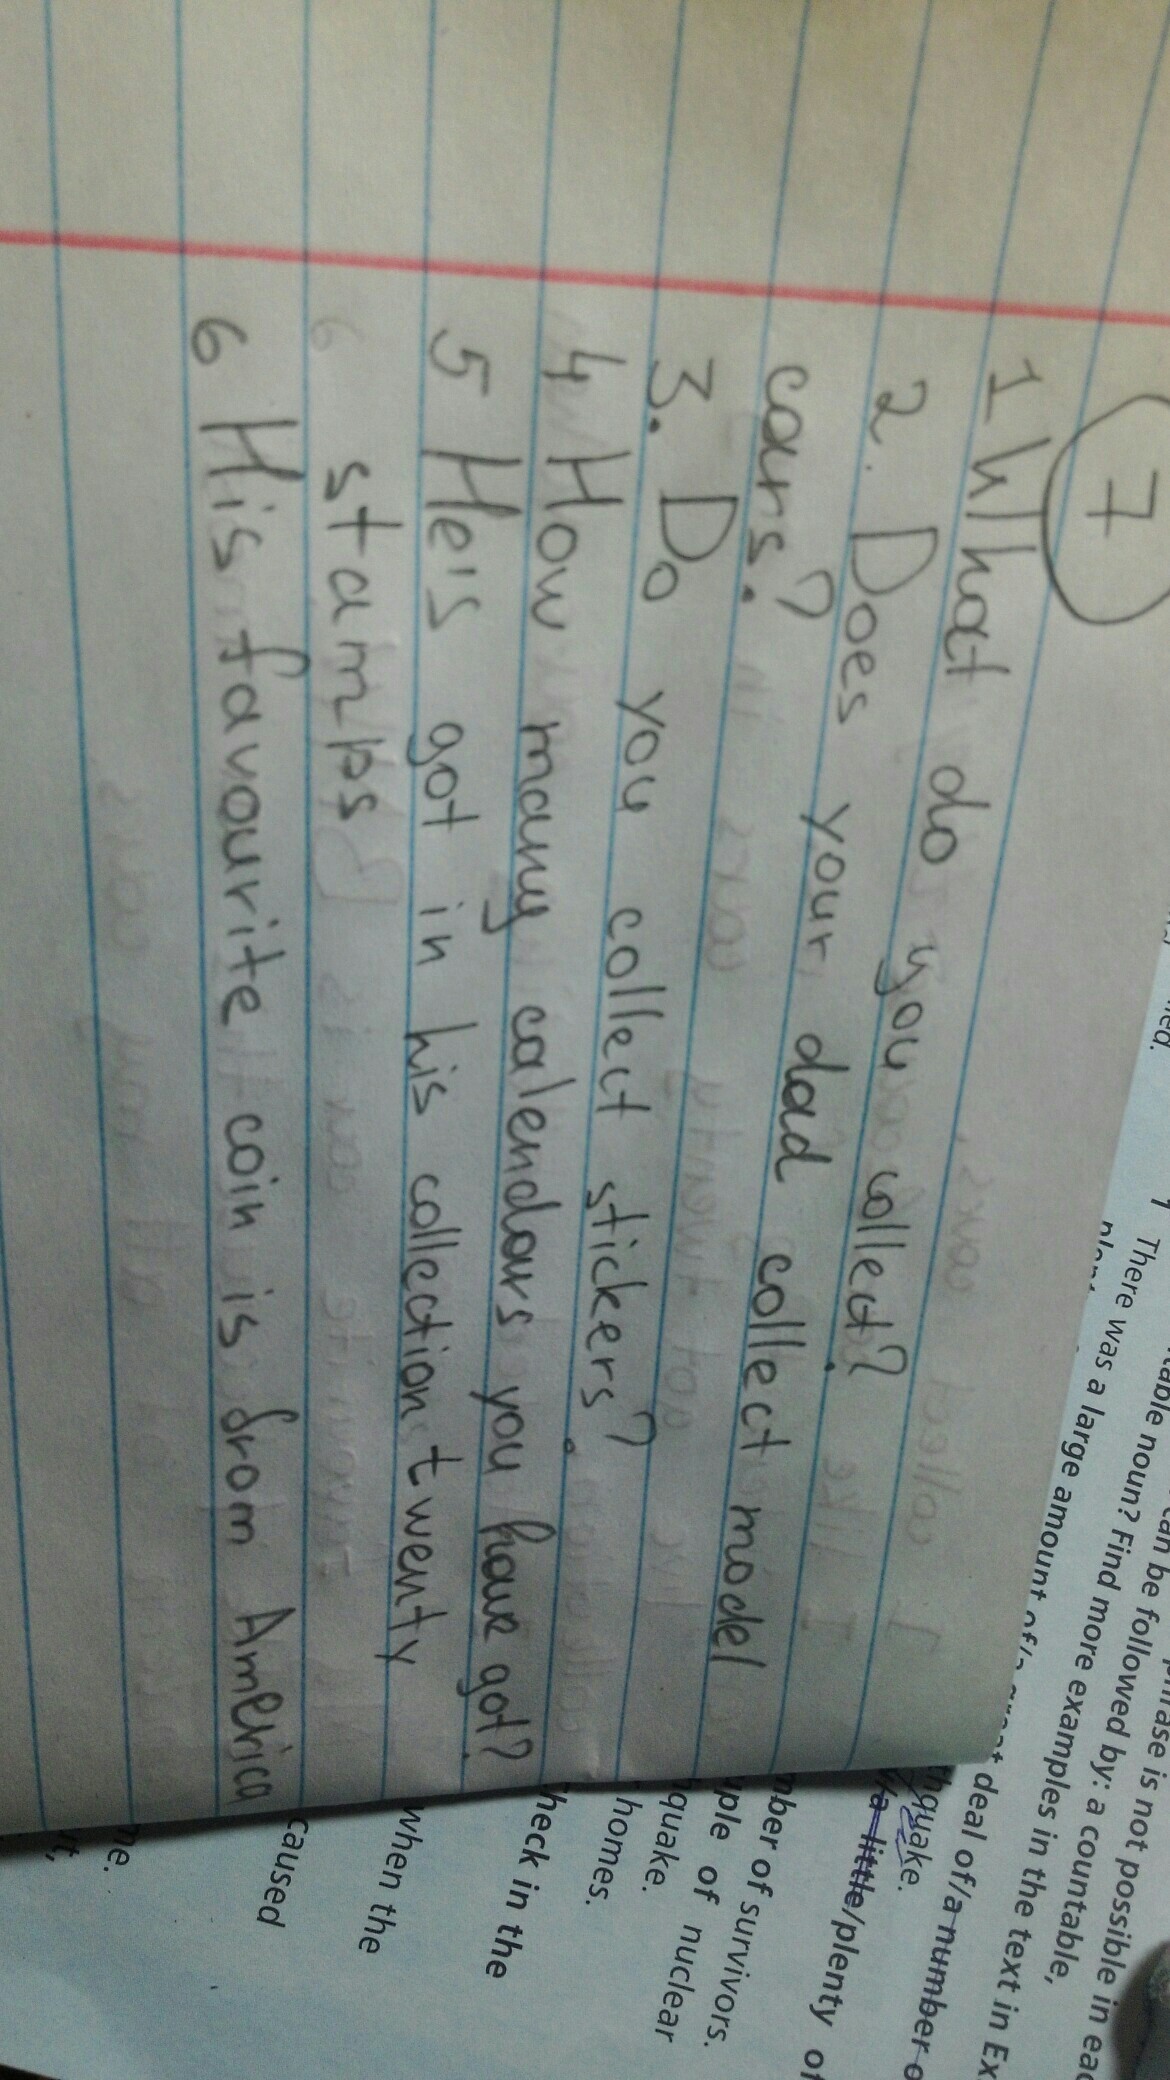 7
1 What do you collect?
2. Does your dad collect model
cars?
3. Do you collect stickers?
4 How many calendars you have got?
5 He's got in his collection twenty
stamps
6 His favourite coin is from America
phrase is not possible in each
can be followed by: a countable,
table noun? Find more examples in the text in Ex
1 There was a large amount of/a great deal of/a number o
quake.
/a little/plenty of
mber of survivors.
ple of nuclear
quake.
homes.
heck in the
when the
caused
me.